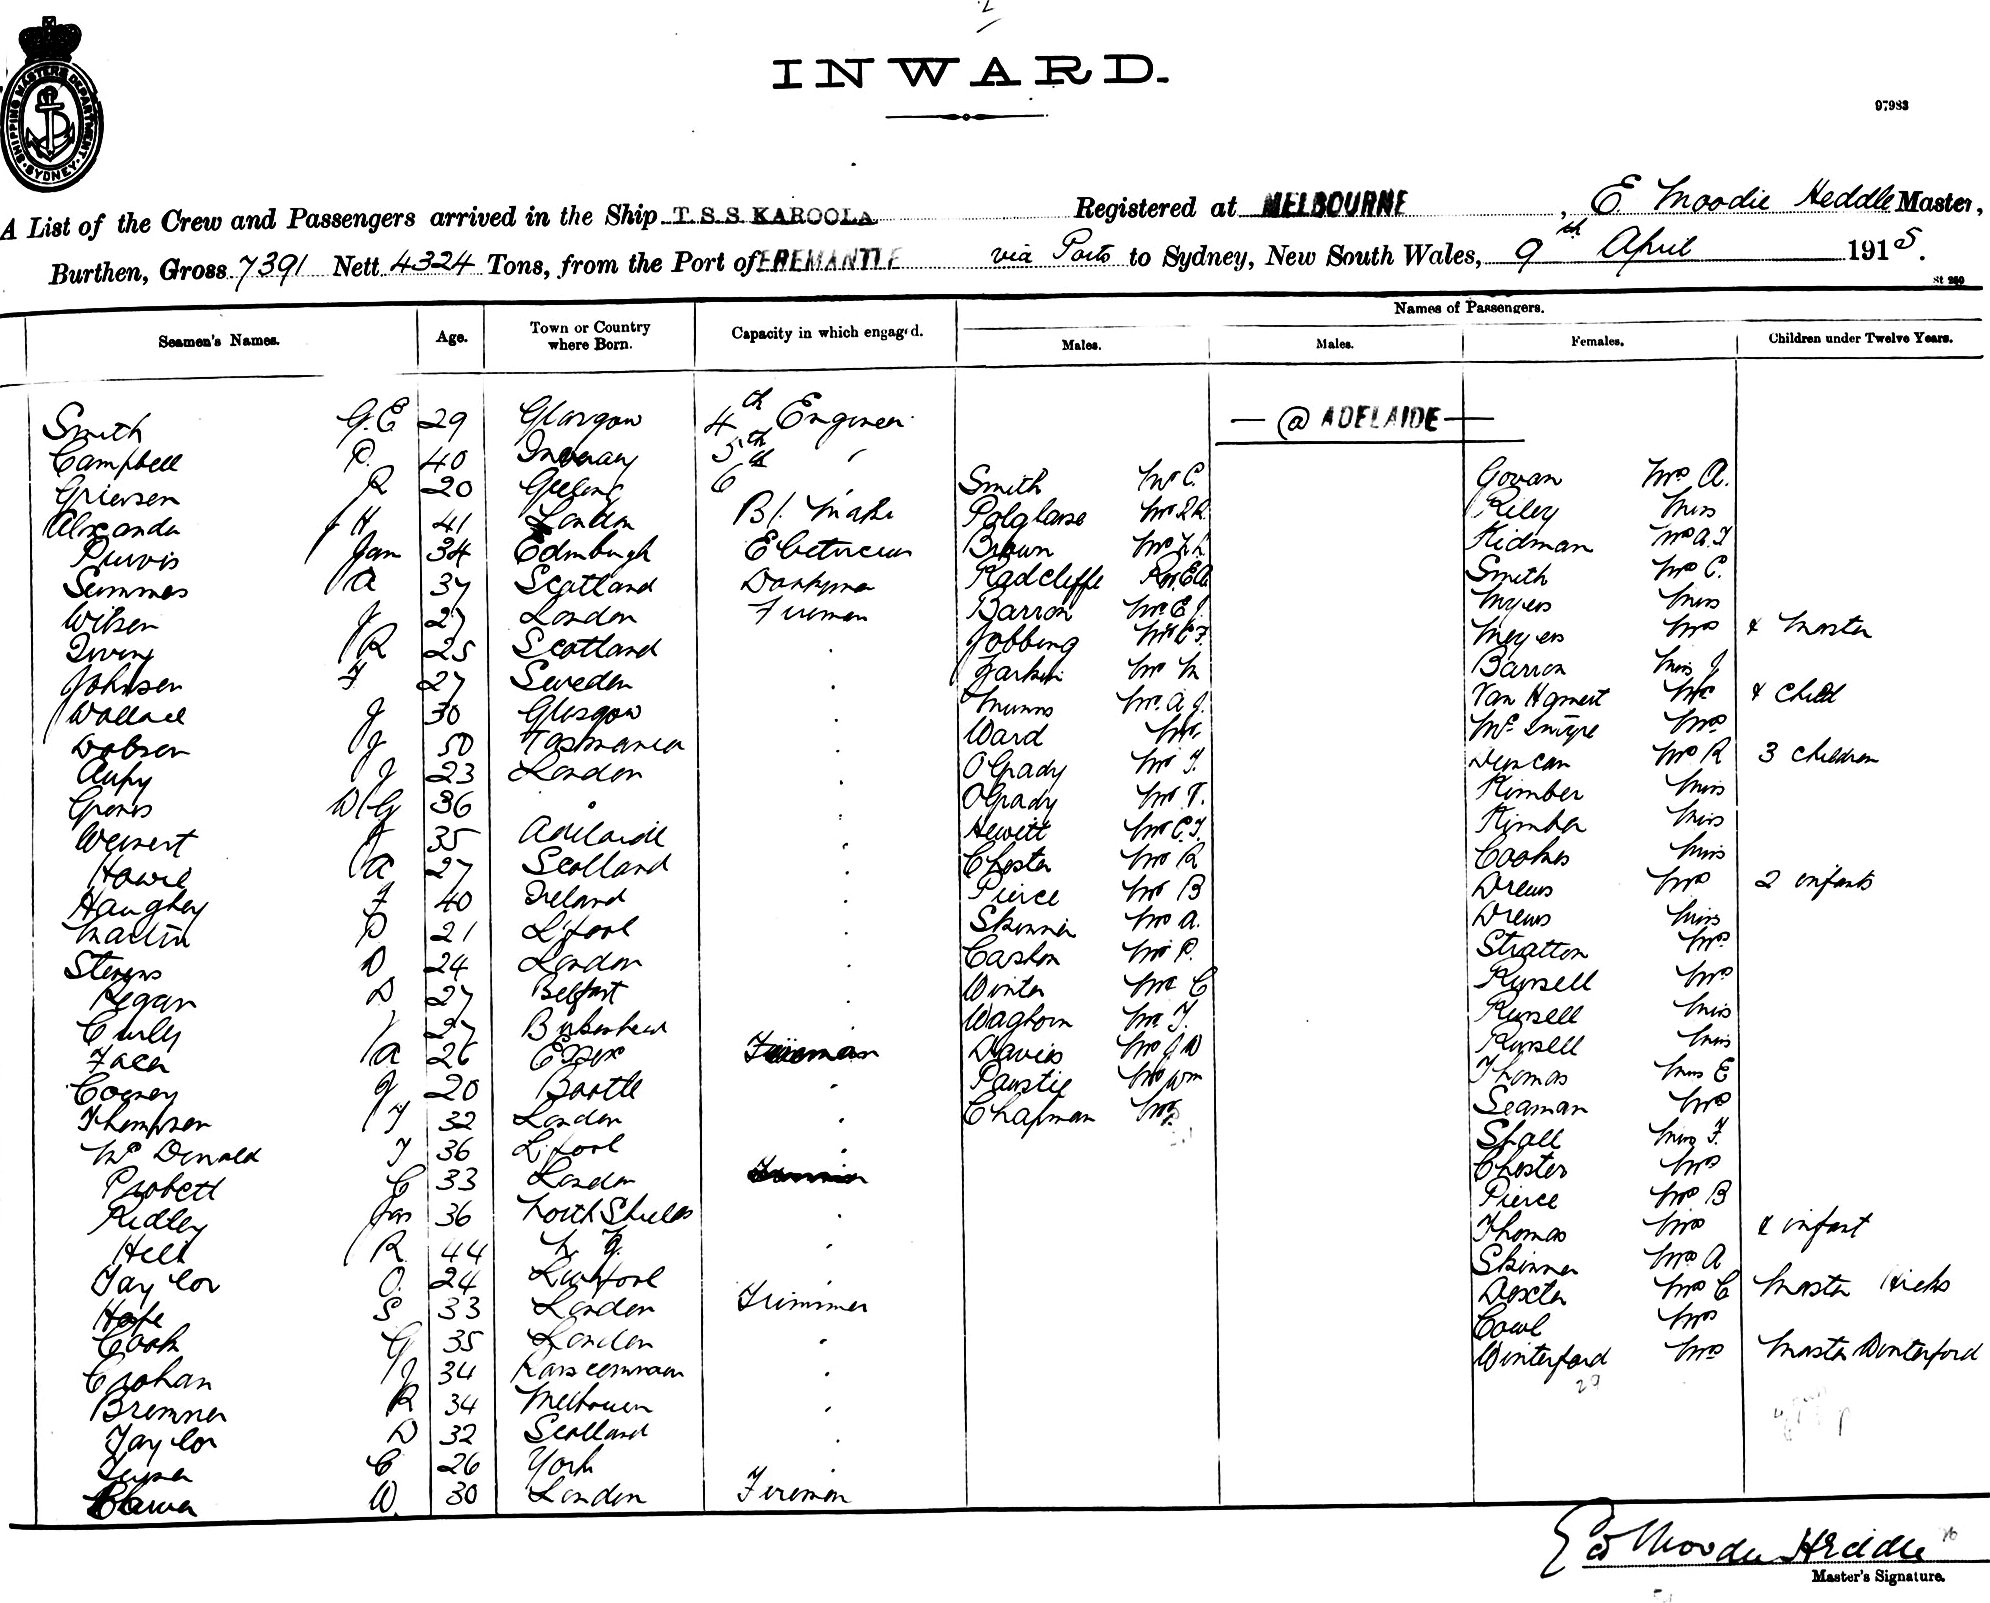 2
INWARD.
97983
SHIPPING MASTERS DEPARTMENT. SYDNEY.
A List of the Crew and Passengers arrived in the Ship T.S.S KAROOLA Registered at MELBOURNE, E Moodie Heddle Master,
Burthen, Gross 7391 Nett 4324 Tons, from the Port of FREMANTLE via Ports to Sydney, New South Wales, 9th April 1915.
St 260
Names of Passengers.
Seamen's Names. Age. Town or Country where Born. Capacity in which engaged. Males. Males. Females. Children under Twelve Years.
Smith G.E 29 Glasgow 4th Engineer — @ ADELAIDE —
Campbell 40 Inveray 5th "
Griersen R 20 Geelong 6 Smith Mr C. Govan Mrs A.
Alexander H 41 London Polglase Mr Riley Miss
Purvis Jam 34 Edinburgh Electrician Brown Mr Kidman Mrs A.J
Simmes A 37 Scotland Donkyman Radcliffe Smith Mrs C.
Wilsen J 27 London Firemen Barron Mr E J. Myers Miss
R 25 Scotland Jobbing Mr Meyers Mrs & Master
Johnsen 27 Sweden Mr M Barron Miss J
Wallace J 30 Glasgow Munns Mr A J. Van Mrs & Child
Dobson J 50 Tasmania Ward Mr. Mc Intyre Mrs
J 23 London O'Grady Mr J. Duncan Mrs R 3 Children
W G 36 " O'Grady Mr T. Kimber Miss
Weinert 35 Adelaide Hewitt Mr C.J. Kimber Miss
Howie A 27 Scotland Chester Mr R Cookes Miss
Haughey 40 Ireland Pierce Mr B Drews Mrs 2 infants
Martin P 21 L'pool Skinner Mr A. Drews Miss
Stevens D 24 London Cashen Mr P. Stratton Mrs
Regan D 27 Belfast Winter Mr C Russell Mrs
Curley 27 Birkenhead Waghorn Mr J. Russell Miss
Facer A 26 Essex Fireman Davies Mr J D Russell Miss
Cooney J 20 Bootle Mr Wm Thomas Miss E
Thompson J 32 London Chapman Mr. Seaman Mrs
Mc Donald J 36 L'pool Stall Miss F.
Probett C 33 London Chester Mrs
Ridley Jas 36 North Shields Pierce Mrs B
Hill R 44 Thomas Mrs & infant
Taylor O. 24 Liverpool Skinner Mrs A
Hope S 33 London Trimmer Dexter Mrs C Master Hicks
Cook G 35 London Cowl Mrs
Crohan J 34 Roscommon Winterford Mrs Master Winterford
Bremner R 34 Melbourn 29
Taylor D 32 Scotland
C 26 York
W. 30 London Firemen
Ed Moodie Heddle
Master's Signature.